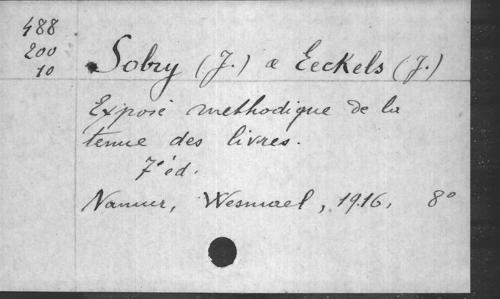 488
200
10
Sobry (J.) & Eeckels (J.)
Exposé méthodique de la
tenue des livres.
7e éd.
Namur, Wesmael, 1916, 8o